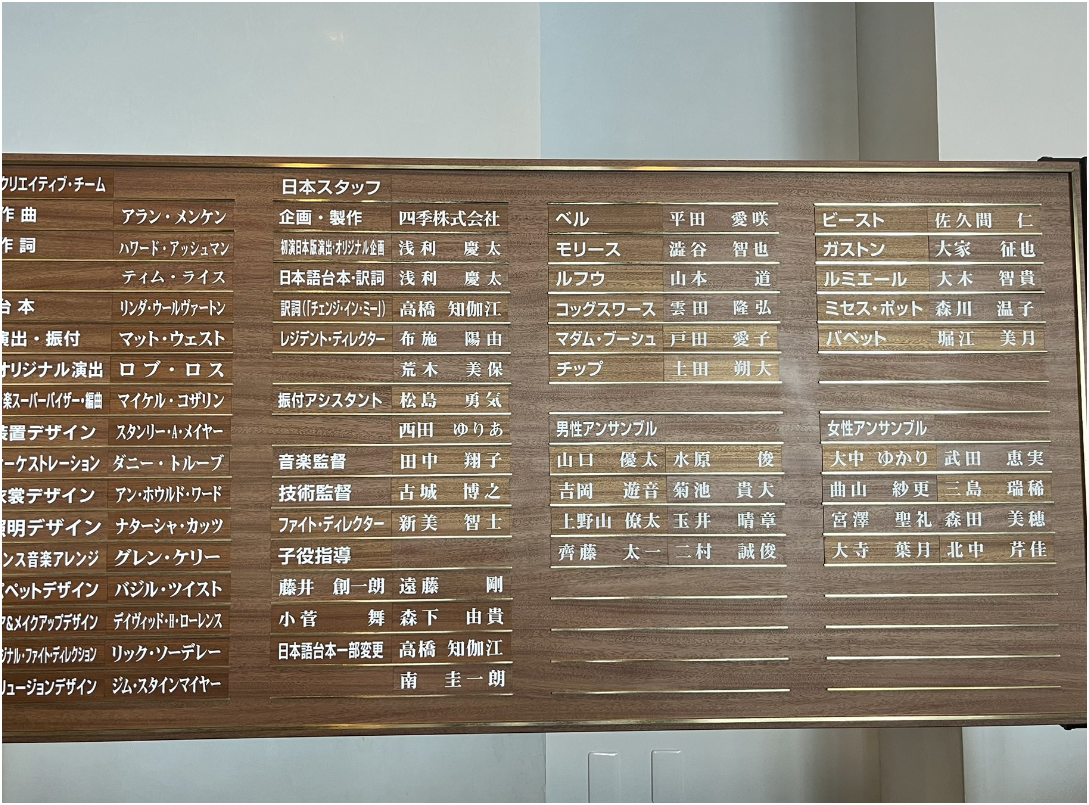 クリエイティブ・チーム
作曲 アラン・メンケン
作詞 ハワード・アッシュマン
ティム・ライス
台本 リンダ・ウールヴァートン
演出・振付 マット・ウェスト
オリジナル演出 ロブ・ロス
楽スーパーバイザー・編曲 マイケル・コザリン
装置デザイン スタンリー・A・メイヤー
オーケストレーション ダニー・トルーブ
衣裳デザイン アン・ホウルド・ワード
照明デザイン ナターシャ・カッツ
ンス音楽アレンジ グレン・ケリー
パペットデザイン バジル・ツイスト
ア&メイクアップデザイン デイヴィッド・H・ローレンス
ジナル・ファイト・ディレクション リック・ソーデレー
リュージョンデザイン ジム・スタインマイヤー
日本スタッフ
企画・製作 四季株式会社
初演日本版演出・オリジナル企画 浅利 慶太
日本語台本・訳詞 浅利 慶太
訳詞(「チェンジ・イン・ミー」) 高橋 知伽江
レジデント・ディレクター 布施 陽由
荒木 美保
振付アシスタント 松島 勇気
西田 ゆりあ
音楽監督 田中 翔子
技術監督 古城 博之
ファイト・ディレクター 新美 智士
子役指導
藤井 創一朗 遠藤 剛
小菅 舞 森下 由貴
日本語台本一部変更 高橋 知伽江
南 圭一朗
ベル 平田 愛咲
モリース 澁谷 智也
ルフウ 山本 道
コッグスワース 雲田 隆弘
マダム・ブーシュ 戸田 愛子
チップ 土田 朔大
男性アンサンブル
山口 優太 水原 俊
吉岡 遊音 菊池 貴大
上野山 僚太 玉井 晴章
齊藤 太一 二村 誠俊
ビースト 佐久間 仁
ガストン 大家 征也
ルミエール 大木 智貴
ミセス・ポット 森川 温子
バベット 堀江 美月
女性アンサンブル
大中 ゆかり 武田 恵実
曲山 紗更 三島 瑞稀
宮澤 聖礼 森田 美穂
大寺 葉月 北中 芹佳